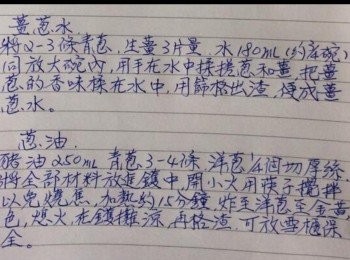 薑葱水
將2-3條青葱,生薑3片量,水180mL(約3/4碗)
同放大碗內,用手在水中揉搓葱和薑,把薑
葱的香味揉在水中,用篩格出渣,便成薑
葱水。
葱油
豬油250mL 青葱3-4條 洋葱1/4個切厚絲
將全部材料放進鑊中,開小火用筷子攪拌
以免燒焦,加熱約15分鐘,炸至洋葱呈金黃
色,熄火,在鑊攤涼,再格渣,可放雪櫃保
全。